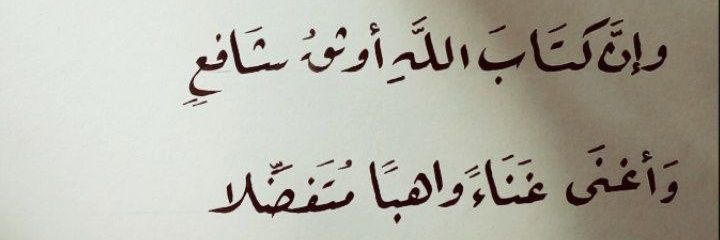 وإنَّ كتَابَ اللَّهِ أوثقُ شَافعٍ
وَأغنَى غَنَاءً واهبًا مُتَفضِّلا